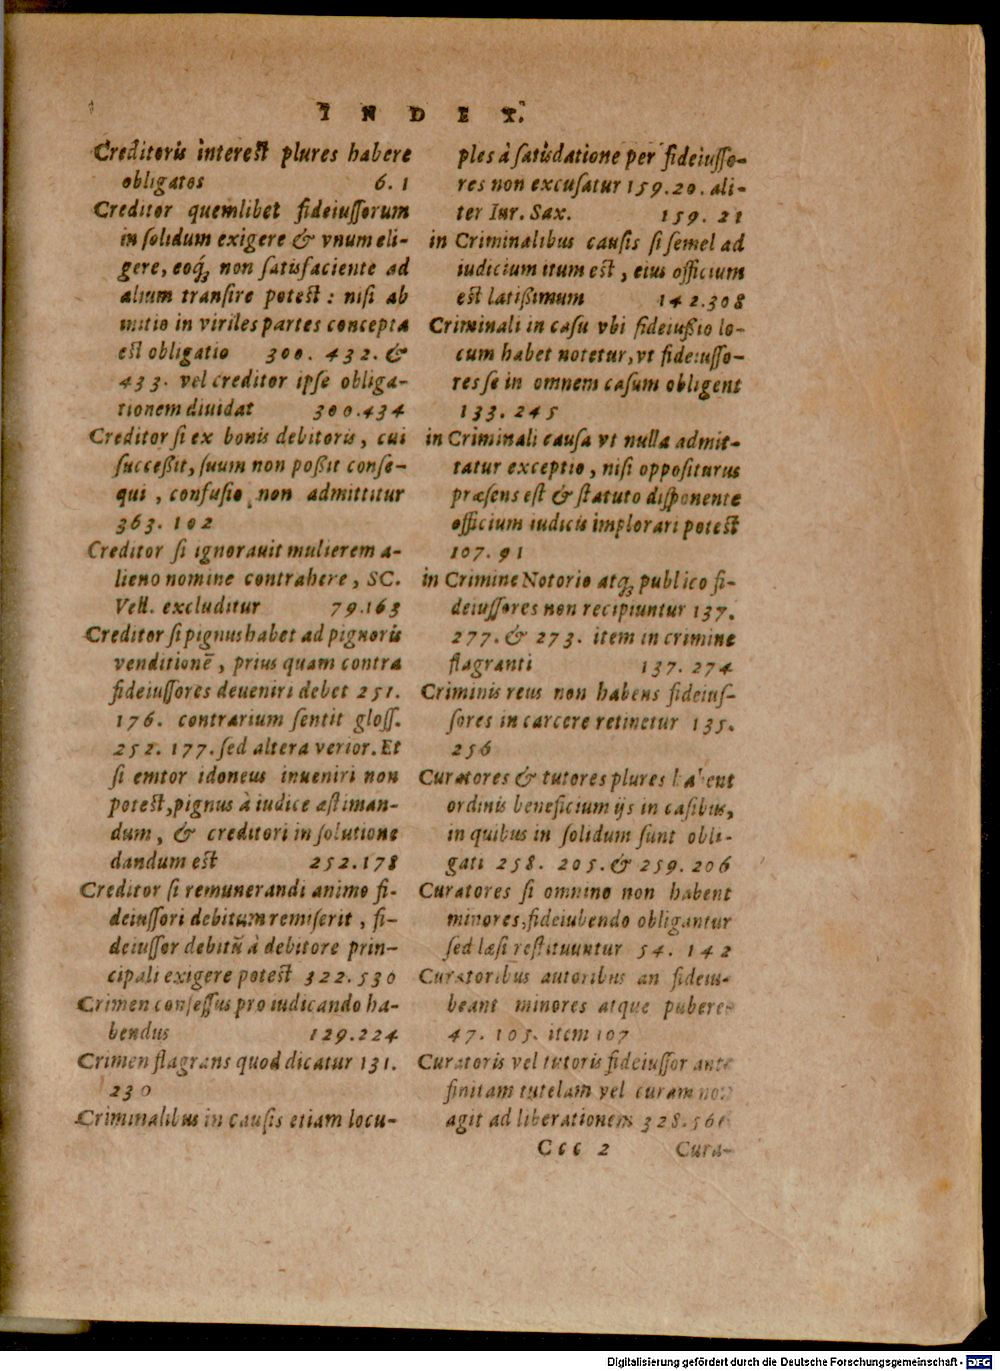 INDEX.
Creditoris interest plures habere
obligatos 6. 1
Creditor quemlibet fideiussorum
in solidum exigere & vnum eli-
gere, eoq́ꝫ non satisfaciente ad
alium transire potest: nisi ab
initio in viriles partes concepta
est obligatio 300. 432. &
433. vel creditor ipse obliga-
tionem diuidat 300.434
Creditor si ex bonis debitoris, cui
succeßit, suum non poßit conse-
qui, confusio non admittitur
363. 102
Creditor si ignorauit mulierem a-
lieno nomine contrahere, SC.
Vell. excluditur 79.163
Creditor si pignus habet ad pignoris
venditionē, prius quam contra
fideiussores deueniri debet 251.
176. contrarium sentit gloss.
252. 177. sed altera verior. Et
si emtor idoneus inueniri non
potest, pignus à iudice æstiman-
dum, & creditori in solutione
dandum est 252.178
Creditor si remunerandi animo fi-
deiussori debitum remiserit, fi-
deiussor debitū à debitore prin-
cipali exigere potest 322.530
Crimen confessus pro iudicando ha-
bendus 129.224
Crimen flagrans quod dicatur 131.
230
Criminalibus in causis etiam locu-
ples à satisdatione per fideiusso-
res non excusatur 159.20. ali-
ter Iur. Sax. 159. 21
in Criminalibus causis si semel ad
iudicium itum est, eius officium
est latißimum 142.308
Criminali in casu vbi fideiußio lo-
cum habet notetur, vt fideiusso-
res se in omnem casum obligent
133. 245
in Criminali causa vt nulla admit-
tatur exceptio, nisi oppositurus
præsens est & statuto disponente
officium iudicis implorari potest
107. 91
in Crimine Notorio atqꝫ publico fi-
deiussores non recipiuntur 137.
277. & 273. item in crimine
flagranti 137. 274
Criminis reus non habens fideius-
sores in carcere retinetur 135.
256
Curatores & tutores plures habent
ordinis beneficium ijs in casibus,
in quibus in solidum sunt obli-
gati 258. 205. & 259. 206
Curatores si omnino non habent
minores, fideiubendo obligantur
sed læsi restituuntur 54. 142
Curatoribus autoribus an fideiu-
beant minores atque puberes
47. 105. item 107
Curatoris vel tutoris fideiussor ante
finitam tutelam vel curam non
agit ad liberationem 328.566
Ccc 2 Cura-
Digitalisierung gefördert durch die Deutsche Forschungsgemeinschaft - DFG